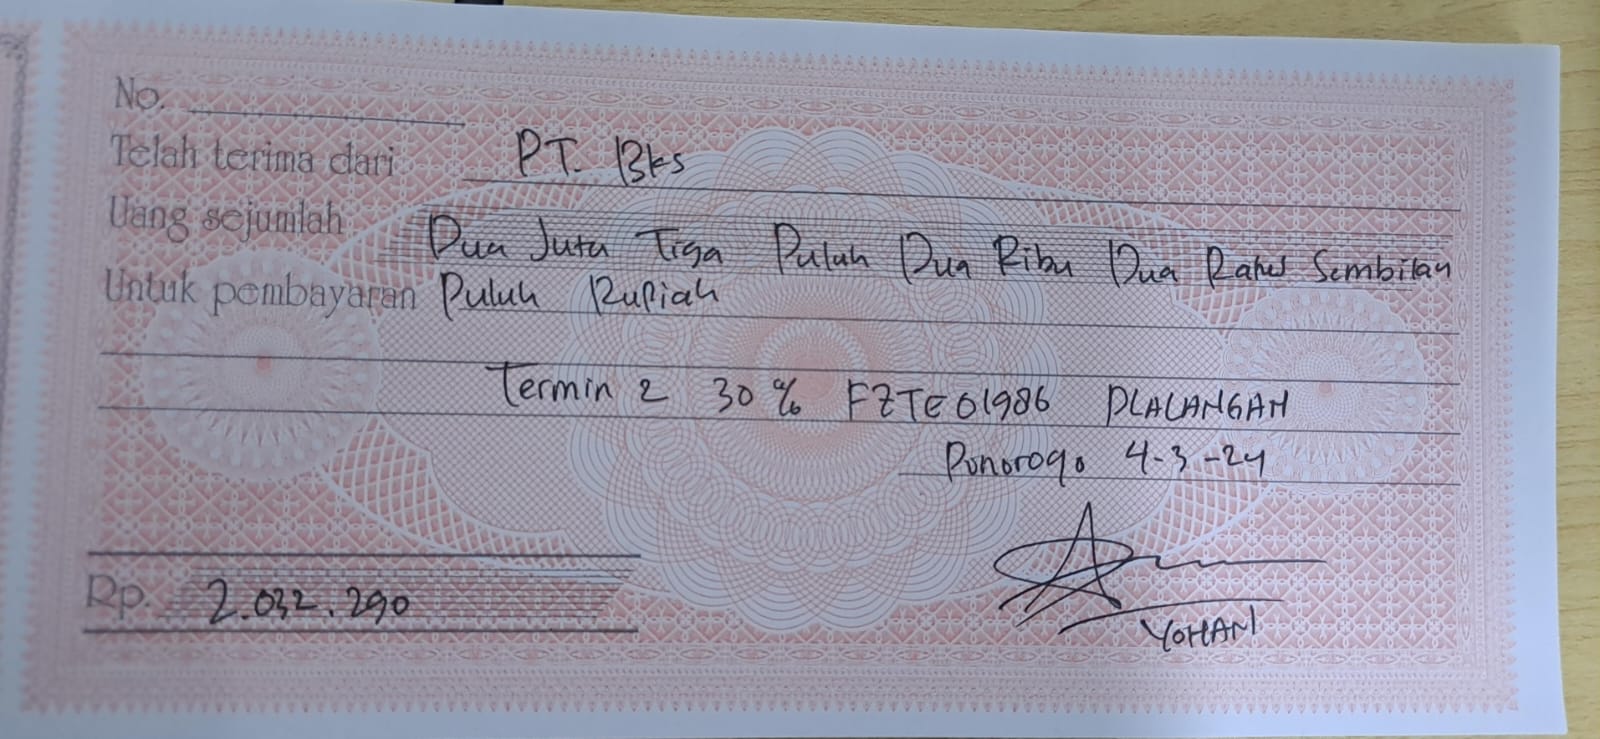 No.
Telah terima dari PT. Bks
Uang sejumlah Dua Juta Tiga Puluh Dua Ribu Dua Ratus Sembilan
Untuk pembayaran Puluh Rupiah
Termin 2 30 % FZTE01986 PLALANGAN
Ponorogo 4-3-24
Rp. 2.032.290
YOHAN